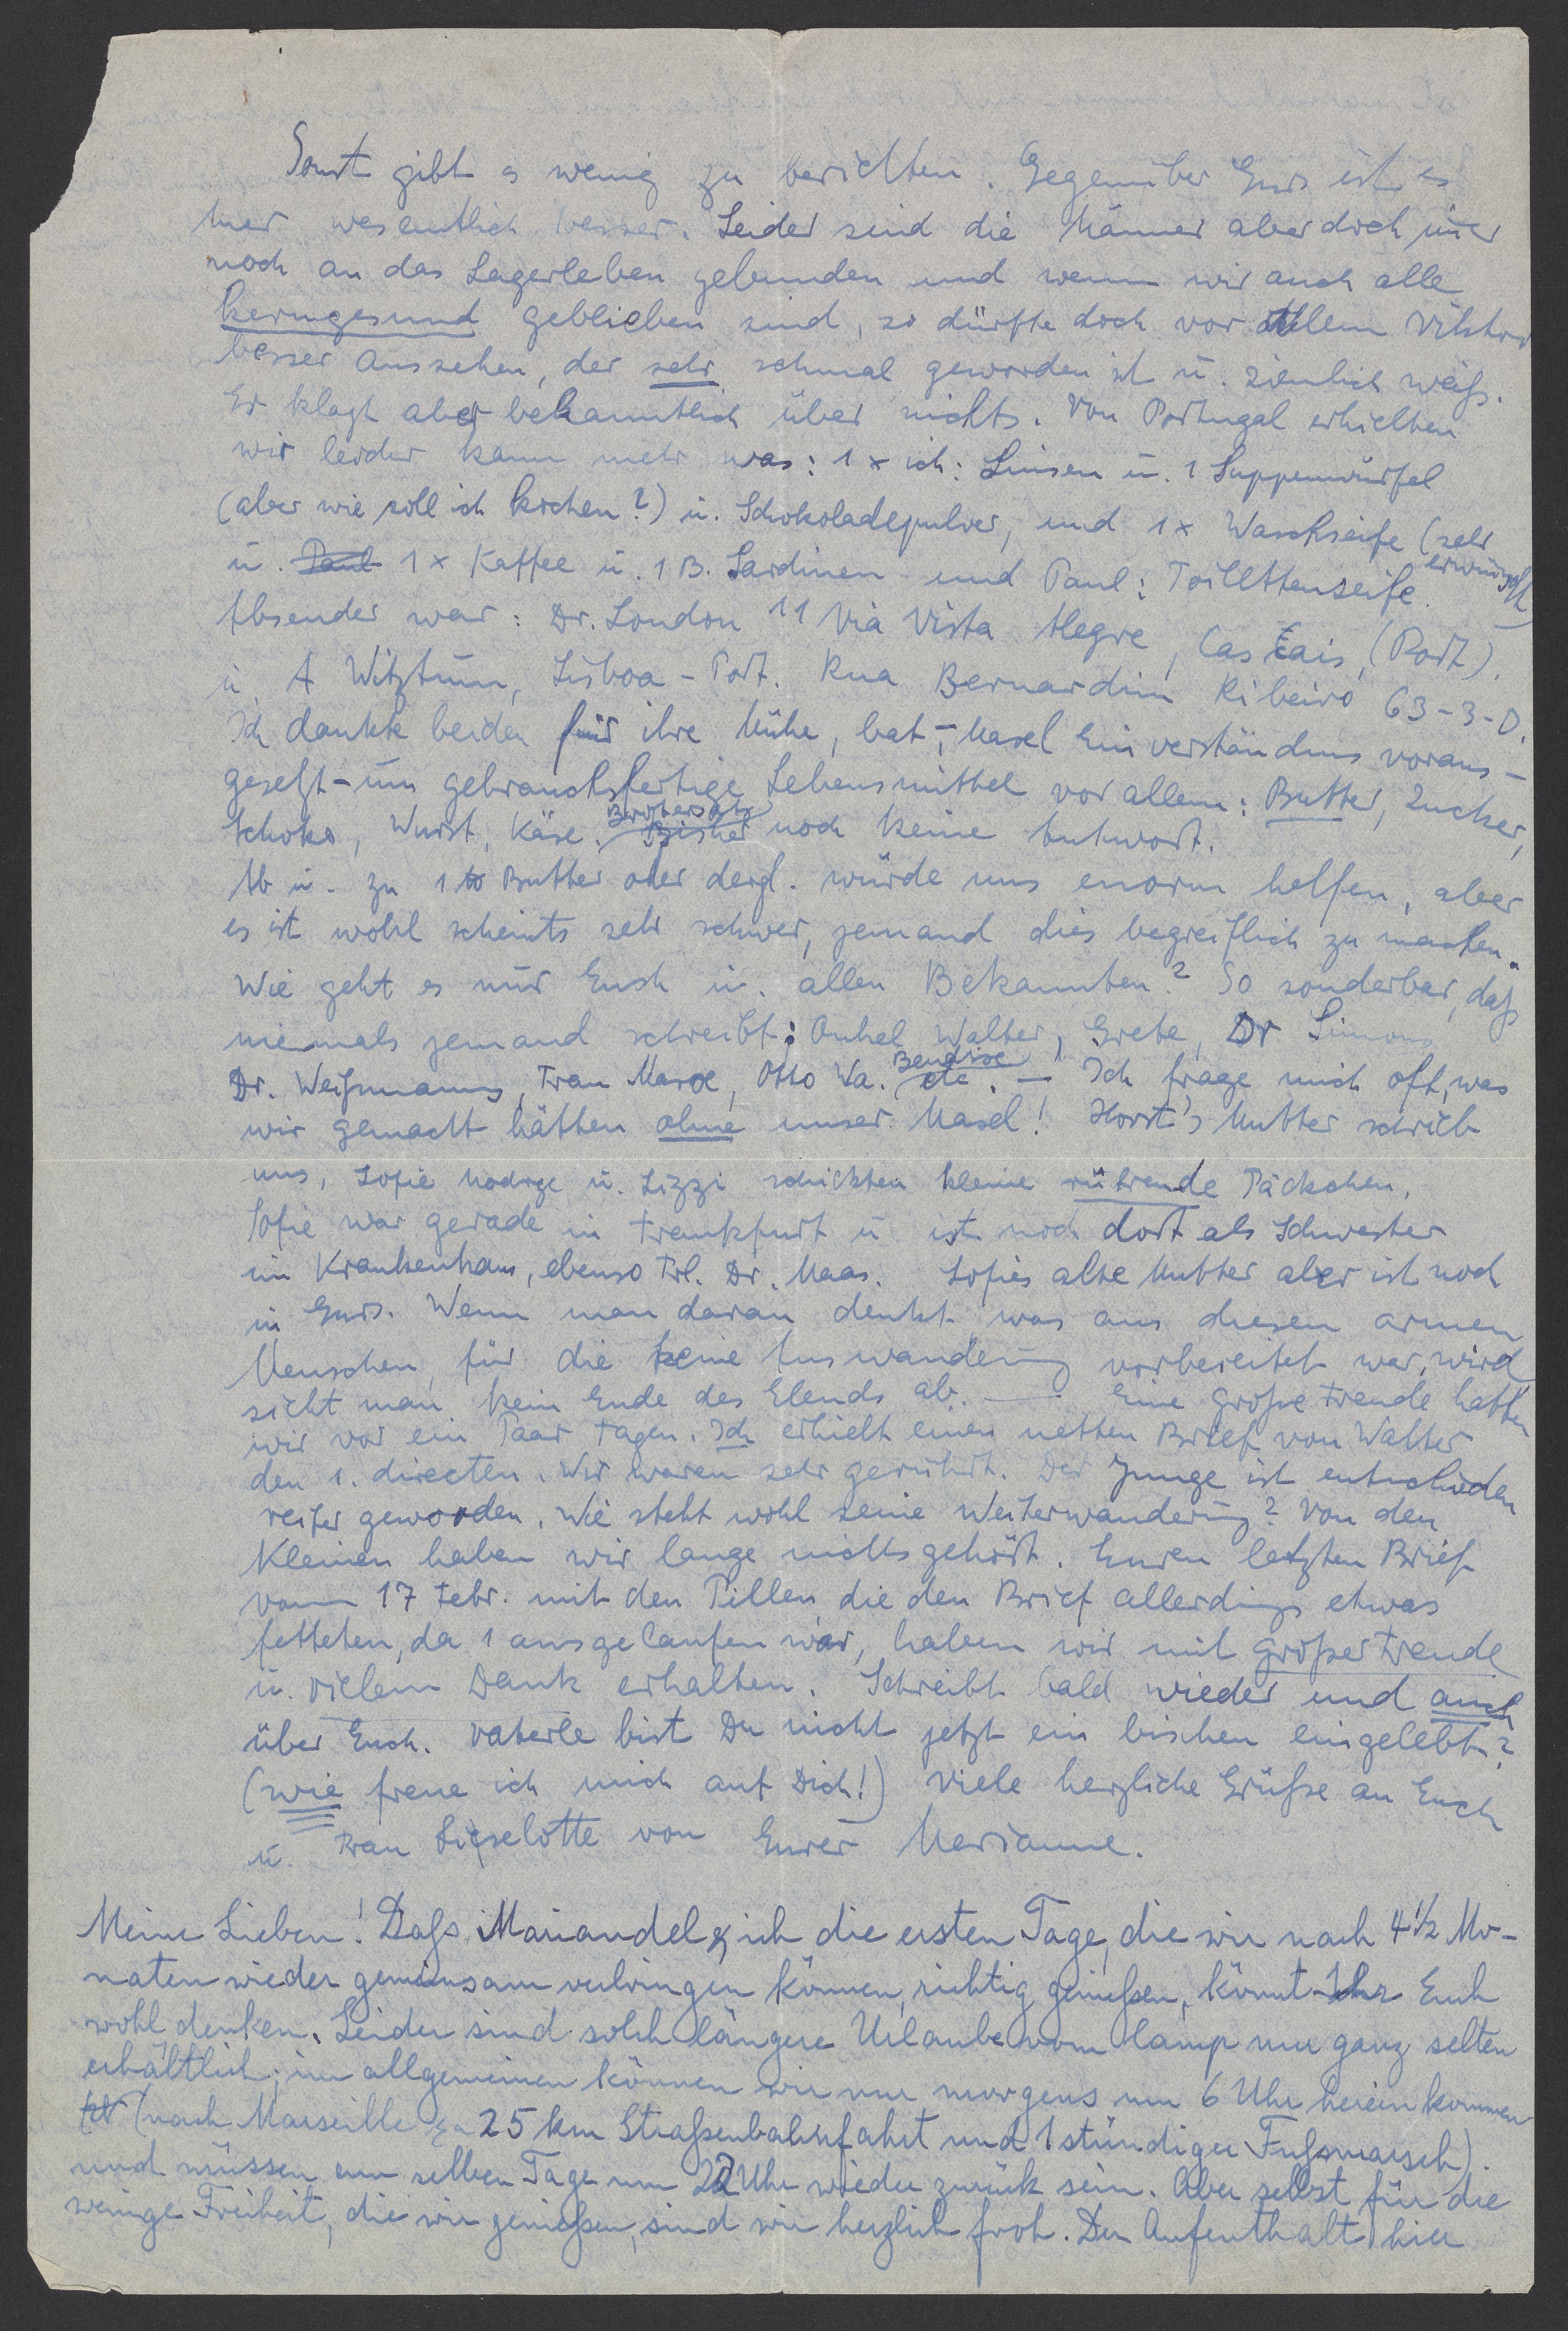 Sonst gibt es wenig zu berichten. Gegenüber Gurs ist es
hier wesentlich besser. Leider sind die Männer aber doch im̄er
noch an das Lagerleben gebunden und wenn wir auch alle
kerngesund geblieben sind, so dürfte doch vor allem Viktor
besser aussehen, der sehr schmal geworden ist u. ziemlich weiß.
Er klagt aber bekanntlich über nichts. Von Portugal erhielten
wir leider kaum mehr was: 1 x ich: Linsen u. 1 Suppenwürfel
(aber wie soll ich kochen?) u. Schokoladepulver, und 1 x Waschseife (sehr erwünscht)
u. Paul 1 x Kaffee u. 1 B. Sardinen und Paul: Toilettenseife.
Absender war: Dr. London 11 Via Vista Alegre, Cascais, (Port).
u. A Witztum, Lisboa - Port. Rua Bernardim Ribeiro 63-3-D.
Ich dankte beiden für ihre Mühe, bat, - Masel Einverständnis voraus-
gesetzt - um gebrauchsfertige Lebensmittel vor allem: Butter, Zucker,
Schoko, Wurst, Käse. Bisher noch keine Antwort.
Ab u. zu 1 Butter oder dergl. würde uns enorm helfen, aber
es ist wohl scheints sehr schwer, jemand dies begreiflich zu machen.
Wie geht es nur Euch u. allen Bekannten? So sonderbar, daß
niemals jemand schreibt: Onkel Walter, Grete, Dr Simons
Dr. Weißmanns, Frau Marx, Otto Wa. etc. — Ich frage mich oft, was
wir gemacht hätten ohne unser Masel! Horst's Mutter schrieb
uns, Sofie u. Lizzi schickten kleine rührende Päckchen.
Sofie war gerade in Frankfurt u. ist noch dort als Schwester
im Krankenhaus, ebenso Frl. Dr. Maas. Sofies alte Mutter aber ist noch
in Gurs. Wenn man daran denkt, was aus diesen armen
Menschen, für die keine Auswanderung vorbereitet war, wird
sieht man kein Ende des Elends ab. — Eine große Freude hatten
wir vor ein Paar Tagen. Ich erhielt einen netten Brief von Walter
den 1. directen. Wir waren sehr gerührt. Der Junge ist entschieden
reifer geworden. Wie steht wohl seine Weiterwanderung? Von den
Kleinen haben wir lange nichts gehört. Euren letzten Brief
vom 17 Febr. mit den Pillen die den Brief allerdings etwas
fetteten, da 1 ausgelaufen war, haben wir mit großer Freude
u. vielem Dank erhalten. Schreibt bald wieder und auch
über Euch. Vaterle bist Du nicht jetzt ein bischen eingelebt?
(wie freue ich mich auf Dich!) Viele herzliche Grüße an Euch
u. Frau Lieselotte von Eurer Marianne.
Meine Lieben! Daß Mariandel & ich die ersten Tage, die wir nach 4½ Mo-
naten wieder gemeinsam verbringen können, richtig genießen, könnt Ihr Euch
wohl denken. Leider sind solch längere Urlaube vom Camp nur ganz selten
erhältlich; im allgemeinen können wir nur morgens um 6 Uhr herein kommen
(nach Marseille ca 25 km Straßenbahnfahrt und 1 stündiger Fußmarsch).
und müssen am selben Tage um 22 Uhr wieder zurück sein. Aber selbst für die
wenige Freiheit, die wir genießen, sind wir herzlich froh. Der Aufenthalt hier